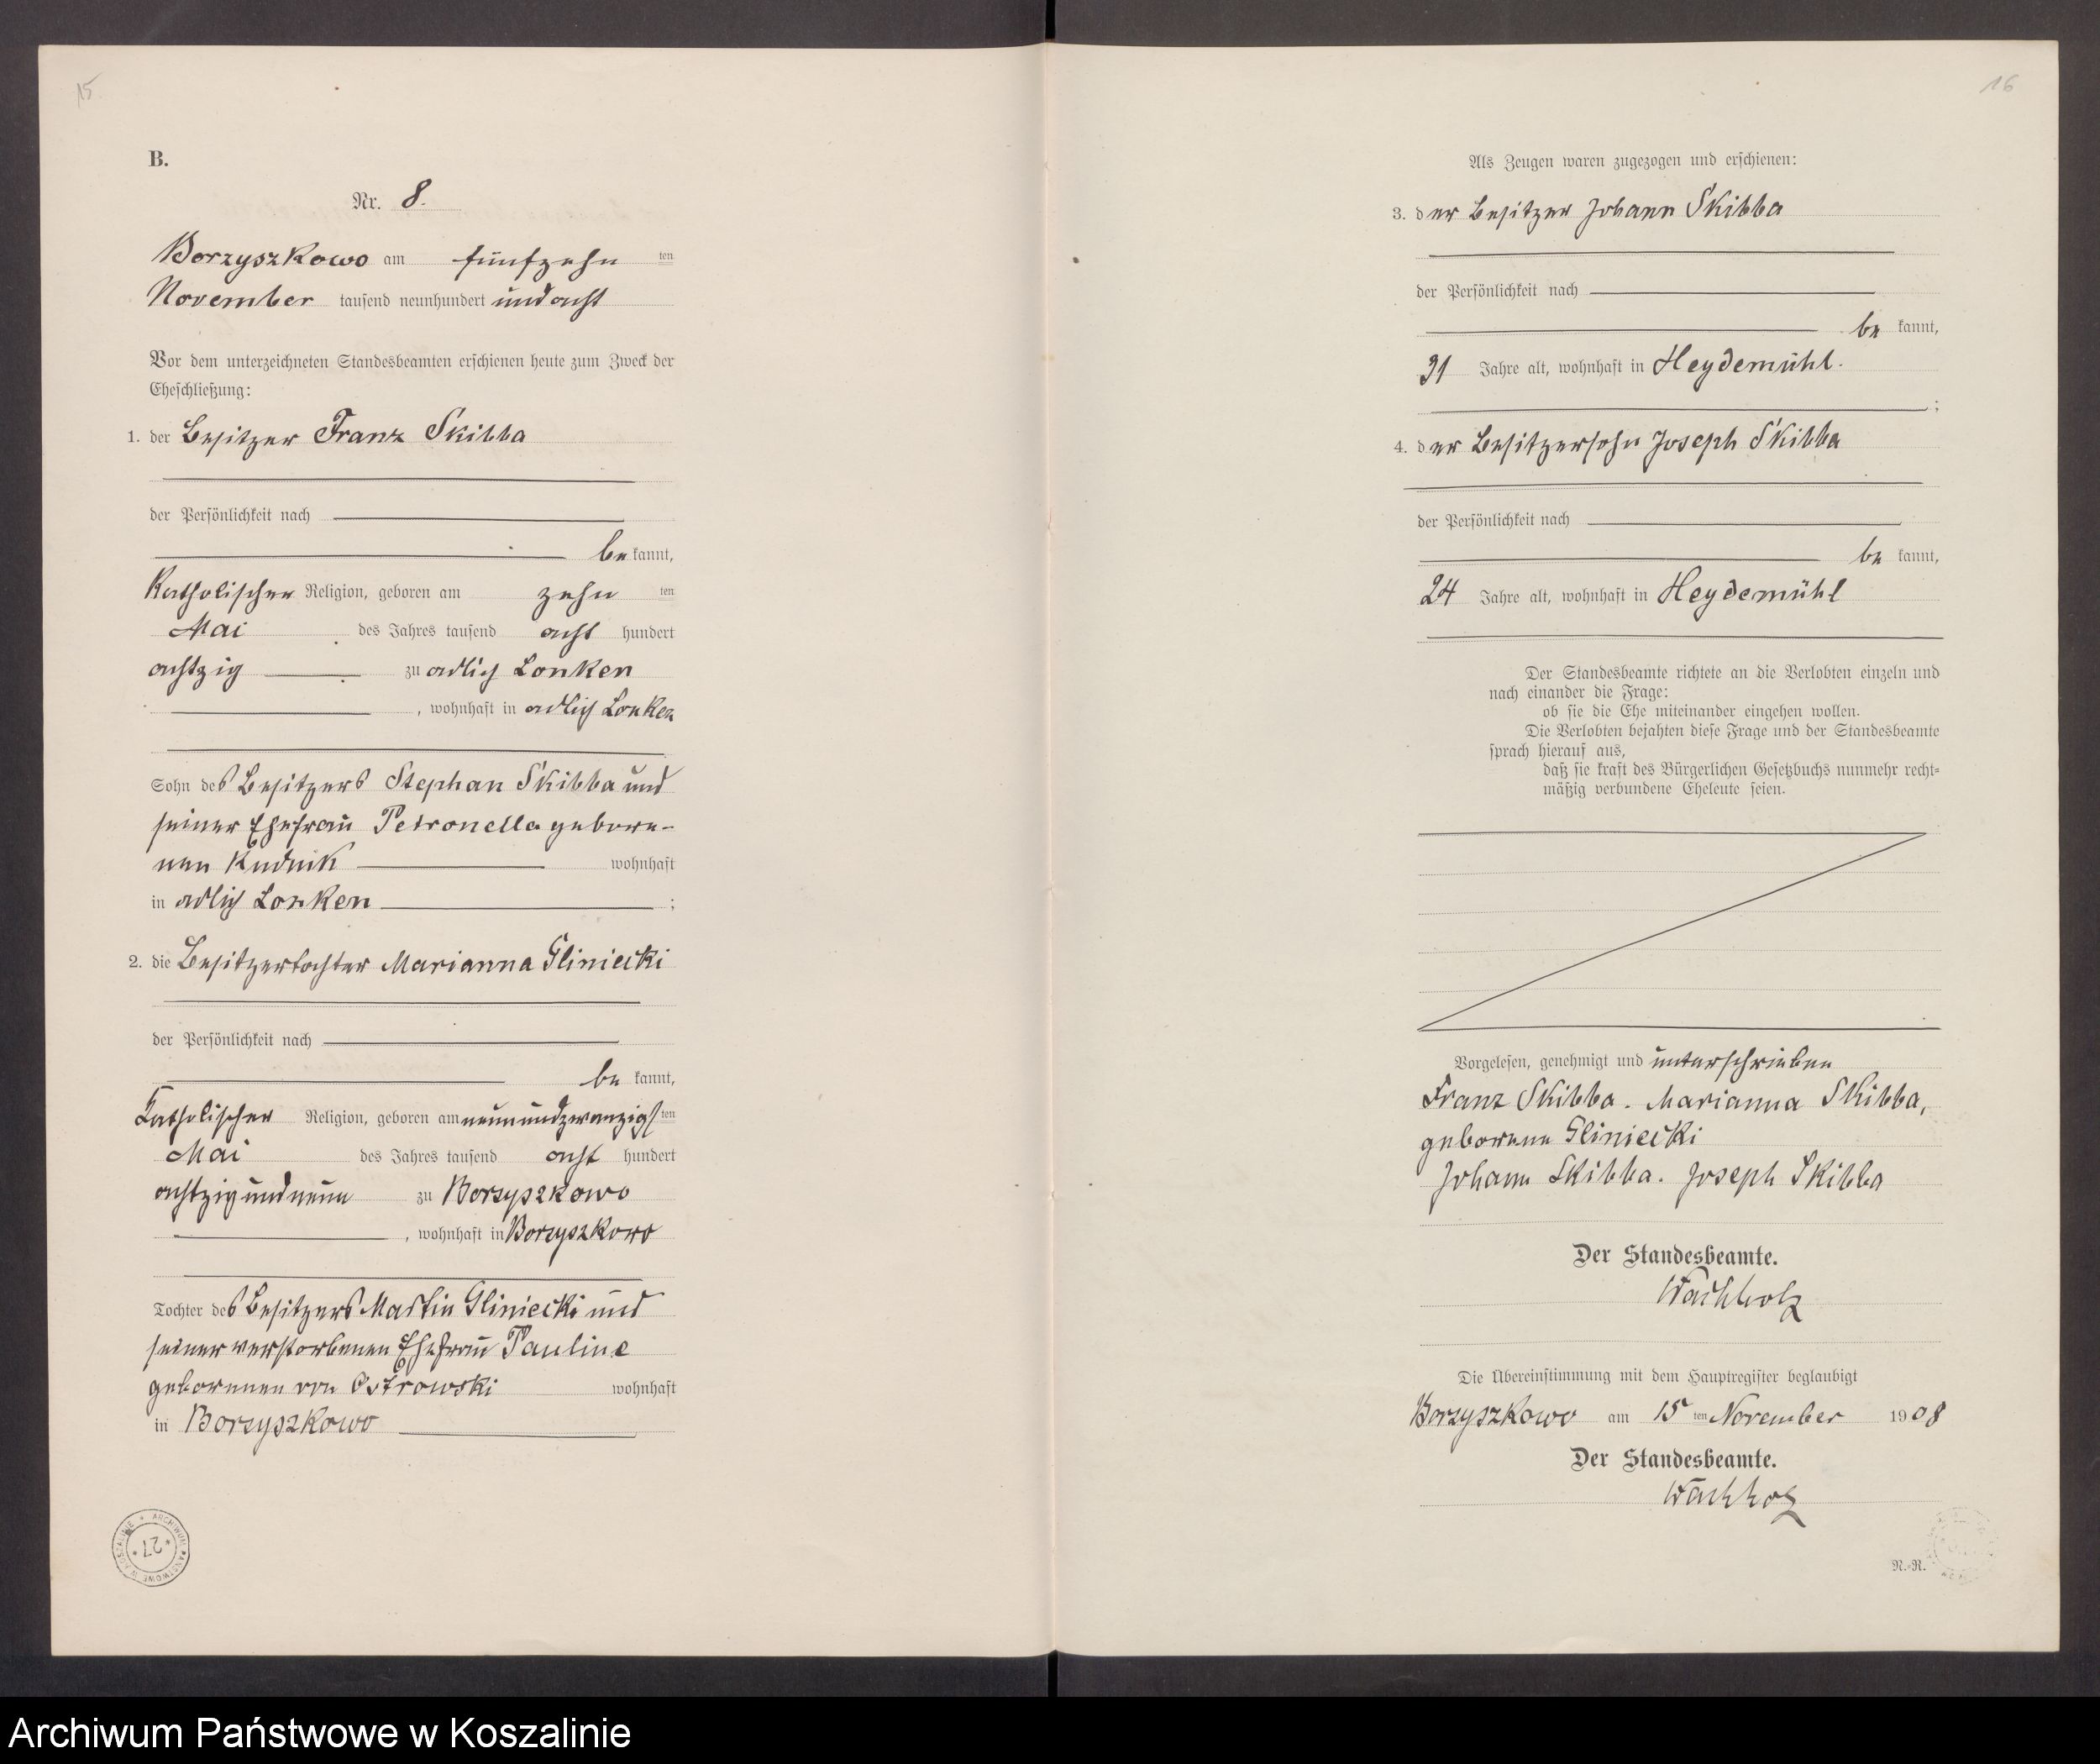 15.
B.
Nr. 8.
Borzyszkowo am fünfzehn ten
November tausend neunhundert undacht
Vor dem unterzeichneten Standesbeamten erschienen heute zum Zweck der
Eheschließung:
1. der Besitzer Franz Skibba
der Persönlichkeit nach
be kannt,
Katholischer Religion, geboren am zehn ten
Mai des Jahres tausend acht hundert
achtzig zu adlig Lonken
, wohnhaft in adlig Lonken
Sohn des Besitzers Stephan Skibba und
seiner Ehefrau Petronella gebore-
nen Kudnik wohnhaft
in adlig Lonken ;
2. die Besitzertochter Marianna Gliniecki
der Persönlichkeit nach
be kannt,
Katholischer Religion, geboren am neunundzwanzigsten
Mai des Jahres tausend acht hundert
achtzigundneun zu Borzyszkowo
, wohnhaft in Borzyszkowo
Tochter des Besitzers Martin Gliniecki und
seiner verstorbenen Ehefrau Pauline
geborenen von Ostrowski wohnhaft
in Borzyszkowo
ARCHIWUM PAŃSTWOWE W KOSZALINIE
* 27 *
16
Als Zeugen waren zugezogen und erschienen:
3. der Besitzer Johann Skibba
der Persönlichkeit nach
be kannt,
31 Jahre alt, wohnhaft in Heydemühl.
;
4. der Besitzersohn Joseph Skibba
der Persönlichkeit nach
be kannt,
24 Jahre alt, wohnhaft in Heydemühl
Der Standesbeamte richtete an die Verlobten einzeln und
nach einander die Frage:
ob sie die Ehe miteinander eingehen wollen.
Die Verlobten bejahten diese Frage und der Standesbeamte
sprach hierauf aus,
daß sie kraft des Bürgerlichen Gesetzbuchs nunmehr recht-
mäßig verbundene Eheleute seien.
Vorgelesen, genehmigt und unterschrieben
Franz Skibba. Marianna Skibba,
geborene Gliniecki
Johann Skibba. Joseph Skibba
Der Standesbeamte.
Wachholz
Die Übereinstimmung mit dem Hauptregister beglaubigt
Borzyszkowo am 15 ten November 1908
Der Standesbeamte.
Wachholz
N.-R.
Archiwum Państwowe w Koszalinie